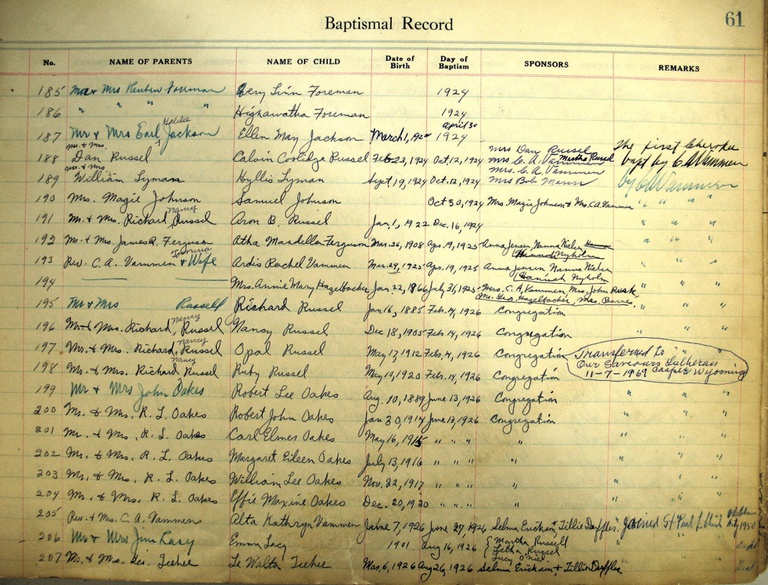 Baptismal Record
61
No. NAME OF PARENTS NAME OF CHILD Date of Birth Day of Baptism SPONSORS REMARKS
185 Mr & Mrs Reuben Foreman Foreman 1924
186 " " " " Foreman 1924
187 Mr & Mrs Earl Jackson Ellen May Jackson March 1, April 30 1924
188 Mr. & Mrs. Dan Russel Calvin Coolidge Russel Feb. 23, 1924 Oct. 12, 1924 Mrs Dan Russel Mrs C. A. Vammen The first Cherokee bapt by C A Vammen
189 Mr & Mrs William Lyman Lyman Sept. 19, 1924 Oct. 12, 1924 Mrs. C. A. Vammen Mrs Bob Mann by C A Vammen
190 Mrs. Magie Johnson Samuel Johnson Oct 30, 1924 Mrs Magie Johnson & Mrs. C. A. Vammen " "
191 Mr. & Mrs. Richard Nancy Russel B. Russel Jan. 1, 1922 Dec. 16, 1924 " "
192 Mr. & Mrs. James R. Ferguson Mardella Ferguson Mar. 26, 1908 Apr. 19, 1925 Anna Jensen " "
193 Rev. C. A. Vammen & Wife Ardis Rachel Vammen Mar. 29, 1925 Apr. 19, 1925 Anna Jensen " "
194 Mrs. Annie Mary Hazelbacker Jan 22, 1866 July 31, 1925 Mrs. C. A. Vammen, Mrs. John Rusk " "
195 Mr & Mrs Russell Richard Russel Jan 16, 1885 Feb. 14, 1926 Congregation " "
196 Mr & Mrs. Richard Nancy Russel Nancy Russel Dec 18, 1905 Feb. 14, 1926 Congregation " "
197 Mr. & Mrs. Richard Nancy Russel Opal Russel May 17, 1912 Feb. 14, 1926 Congregation Transferred to Our Saviours Lutheran
198 Mr. & Mrs. Richard Nancy Russel Ruby Russel May 13, 1920 Feb. 14, 1926 Congregation 11-7-1969 Casper Wyoming
199 Mr & Mrs John Oakes Robert Lee Oakes Aug. 10, 1889 June 13, 1926 Congregation " "
200 Mr. & Mrs. R. L. Oakes Robert John Oakes Jan 30, 1914 June 13, 1926 Congregation " "
201 Mr. & Mrs. R. L. Oakes Carl Elmer Oakes May 16, 1915 " " " " " "
202 Mr. & Mrs. R. L. Oakes Margaret Eileen Oakes July 13, 1916 " " " " " "
203 Mr. & Mrs. R. L. Oakes William Lee Oakes Nov. 22, 1917 " " " " " "
204 Mr. & Mrs. R. L. Oakes Effie Maxine Oakes Dec. 20, 1920 " " " " " "
205 Rev. & Mrs. C. A. Vammen Alta Kathryn Vammen June 7, 1926 June 27, 1926 Selma Erickson, Tillie Joined St Paul
206 Mr & Mrs Jim Lacy Emma Lacy 1901 Aug 16, 1926 Martha Russell Letha Russel Lucy
207 Mr. & Mrs. Geo. Teehee Le Walta Teehee Mar. 6, 1926 Aug 26, 1926 Selma Erickson & Tillie